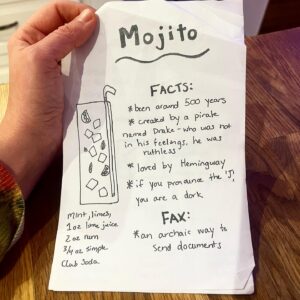 Mojito
FACTS:
*been around 500 years
*created by a pirate
named Drake - who was not
in his feelings, he was
ruthless
*loved by Hemingway
*if you pronounce the "J",
you are a dork
FAX:
*an archaic way to
send documents
mint, limes,
1 oz lime juice
2 oz rum
3/4 oz simple
Club Soda